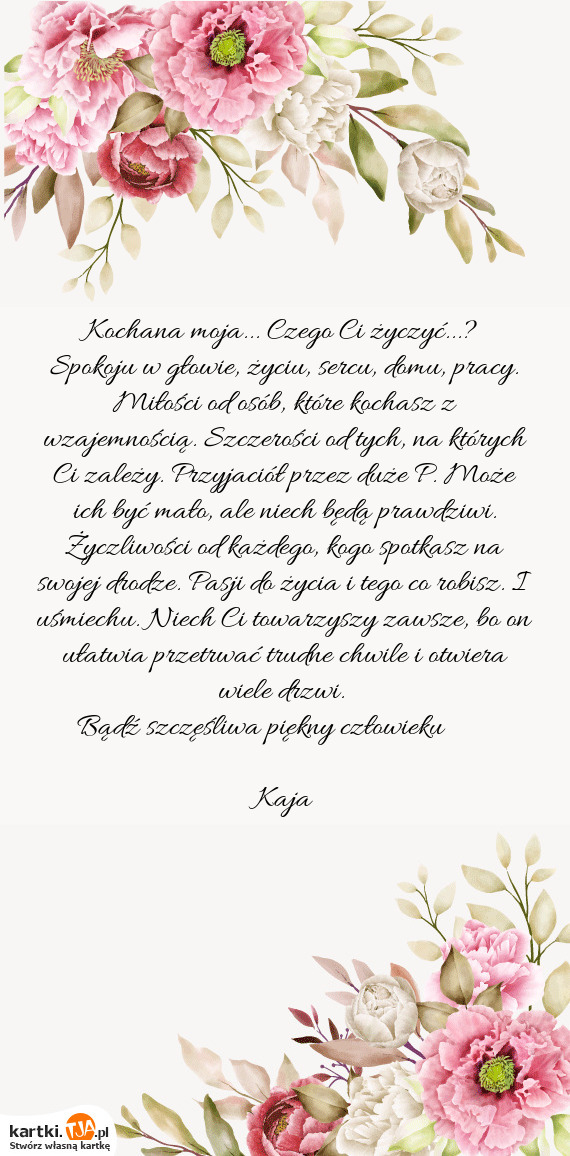 Kochana moja... Czego Ci życzyć...?
Spokoju w głowie, życiu, sercu, domu, pracy.
Miłości od osób, które kochasz z
wzajemnością. Szczerości od tych, na których
Ci zależy. Przyjaciół przez duże P. Może
ich być mało, ale niech będą prawdziwi.
Życzliwości od każdego, kogo spotkasz na
swojej drodze. Pasji do życia i tego co robisz. I
uśmiechu. Niech Ci towarzyszy zawsze, bo on
ułatwia przetrwać trudne chwile i otwiera
wiele drzwi.
Bądź szczęśliwa piękny człowieku
Kaja
kartki.TJA.pl
Stwórz własną kartkę